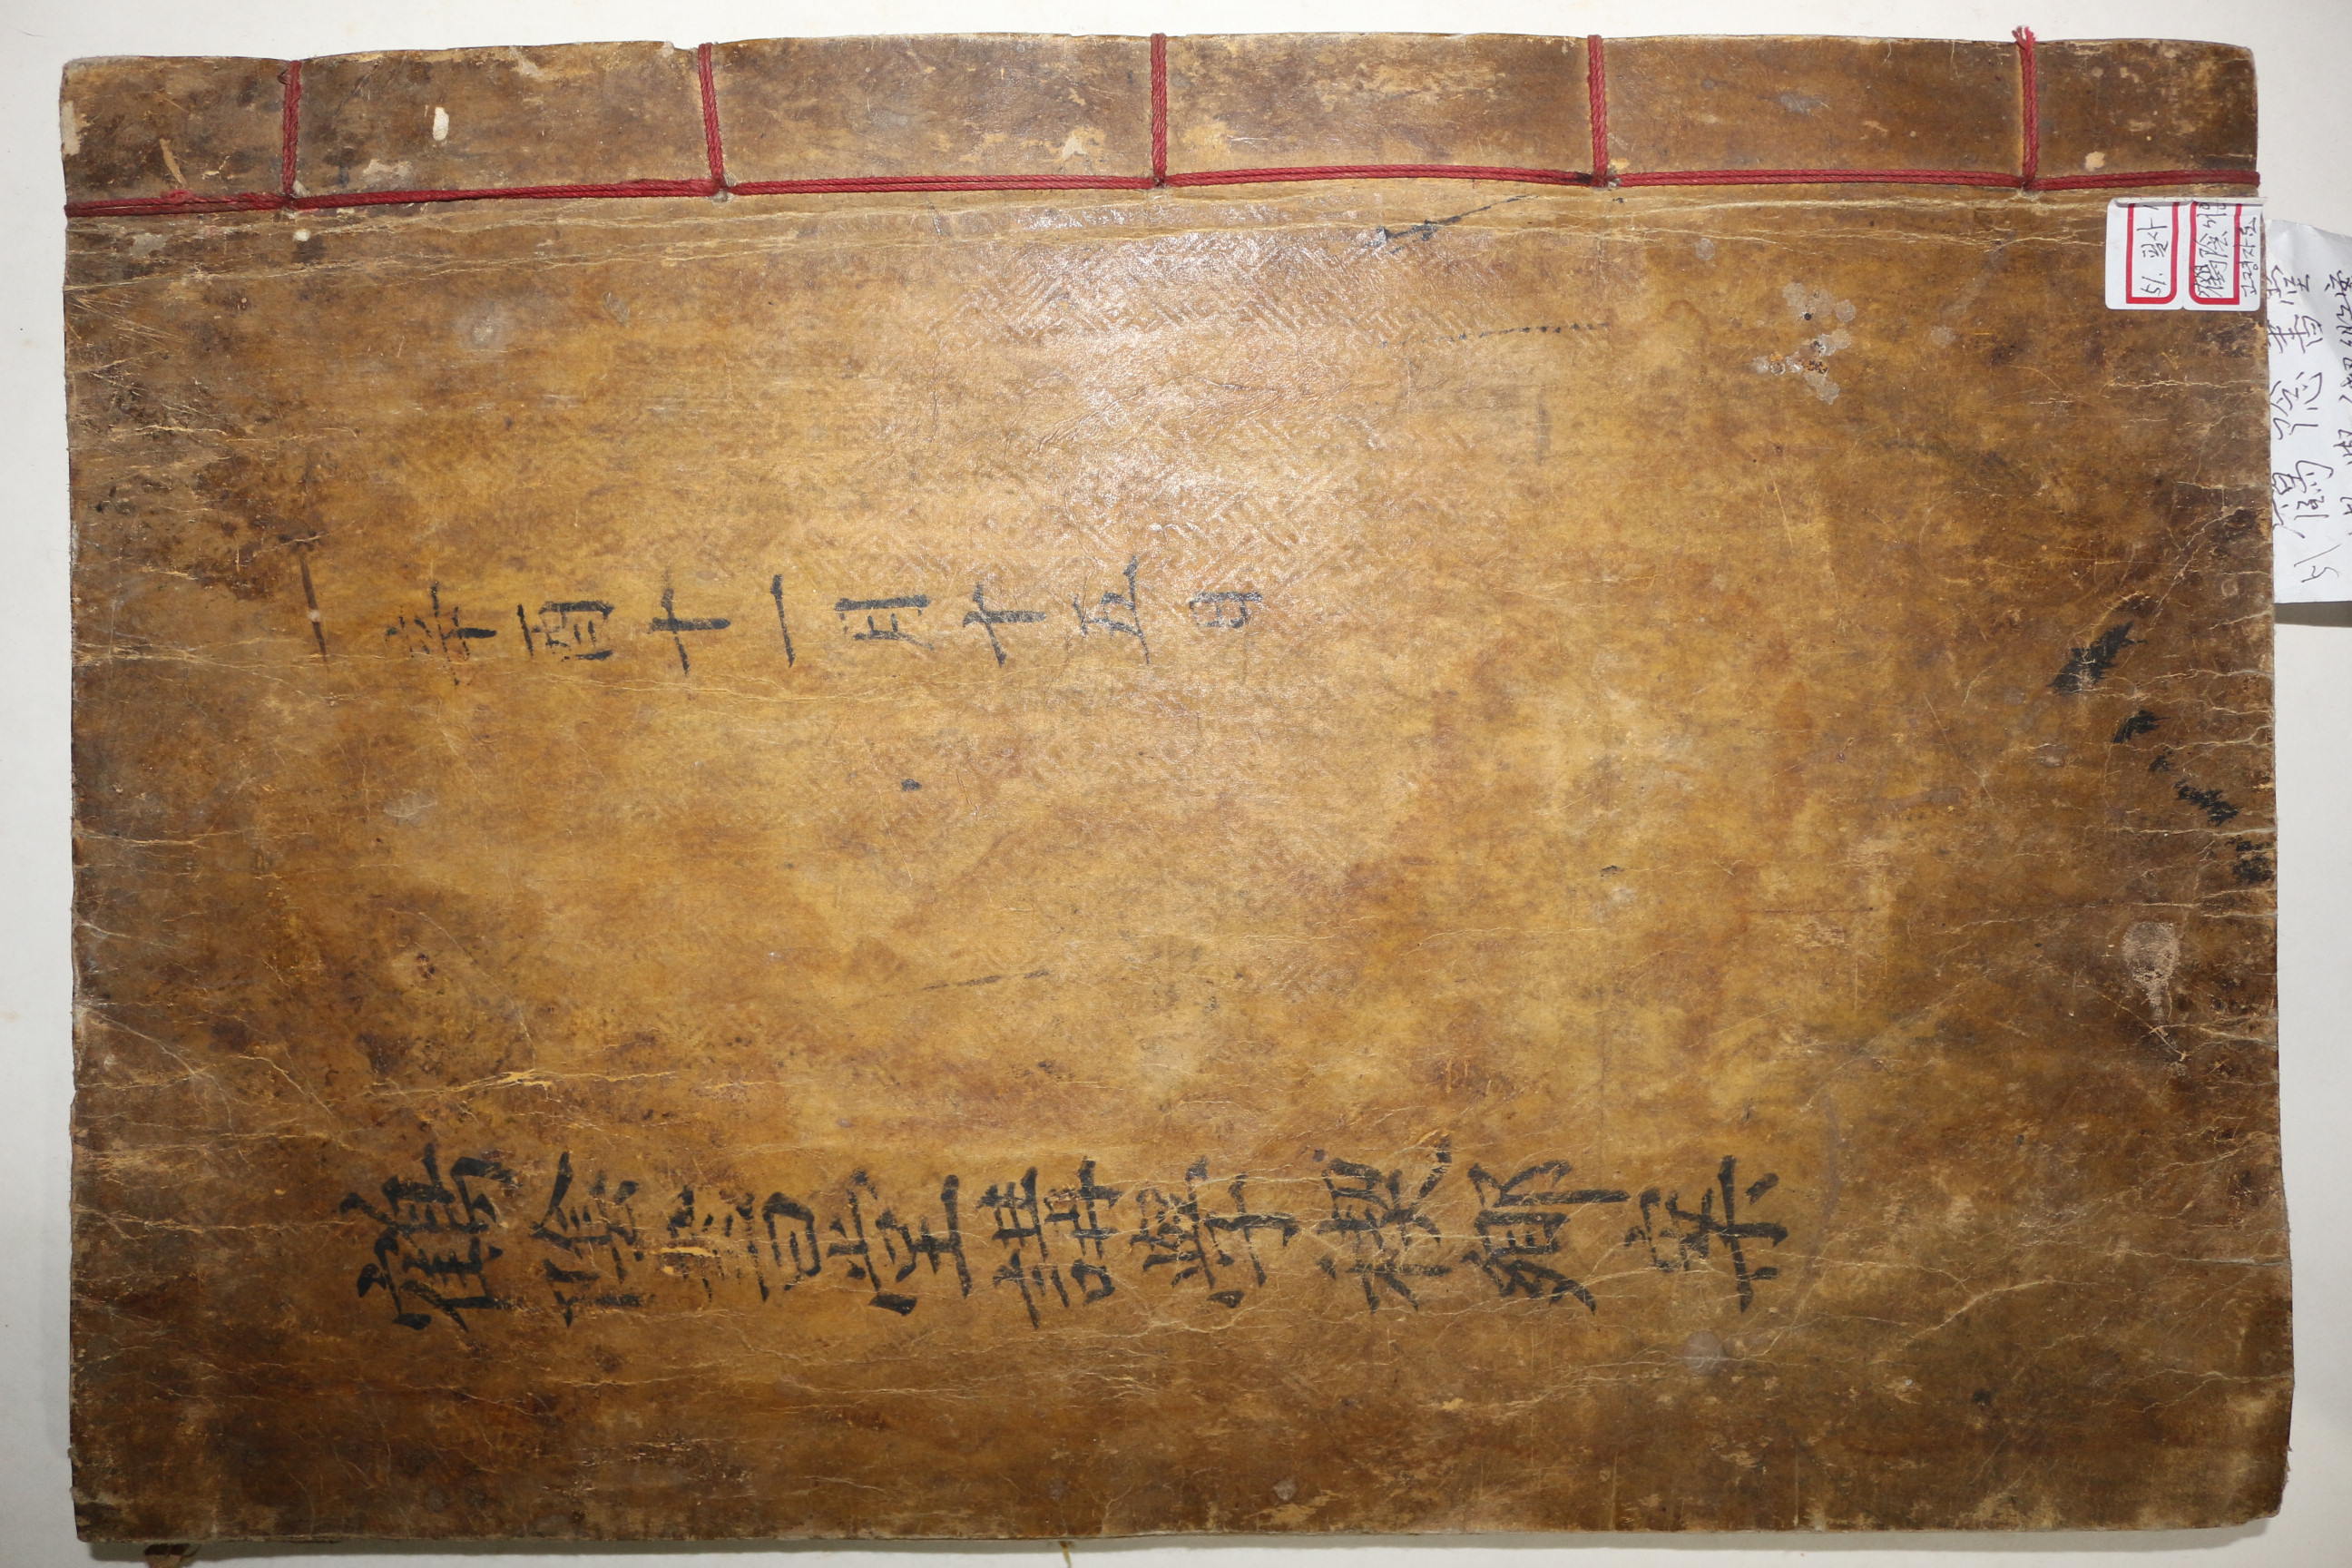 辛酉十一月十五日
鶴陰書堂講學稧鄕案
51. 필사 1
鶴陰서당
고령자료
51 鶴陰書堂